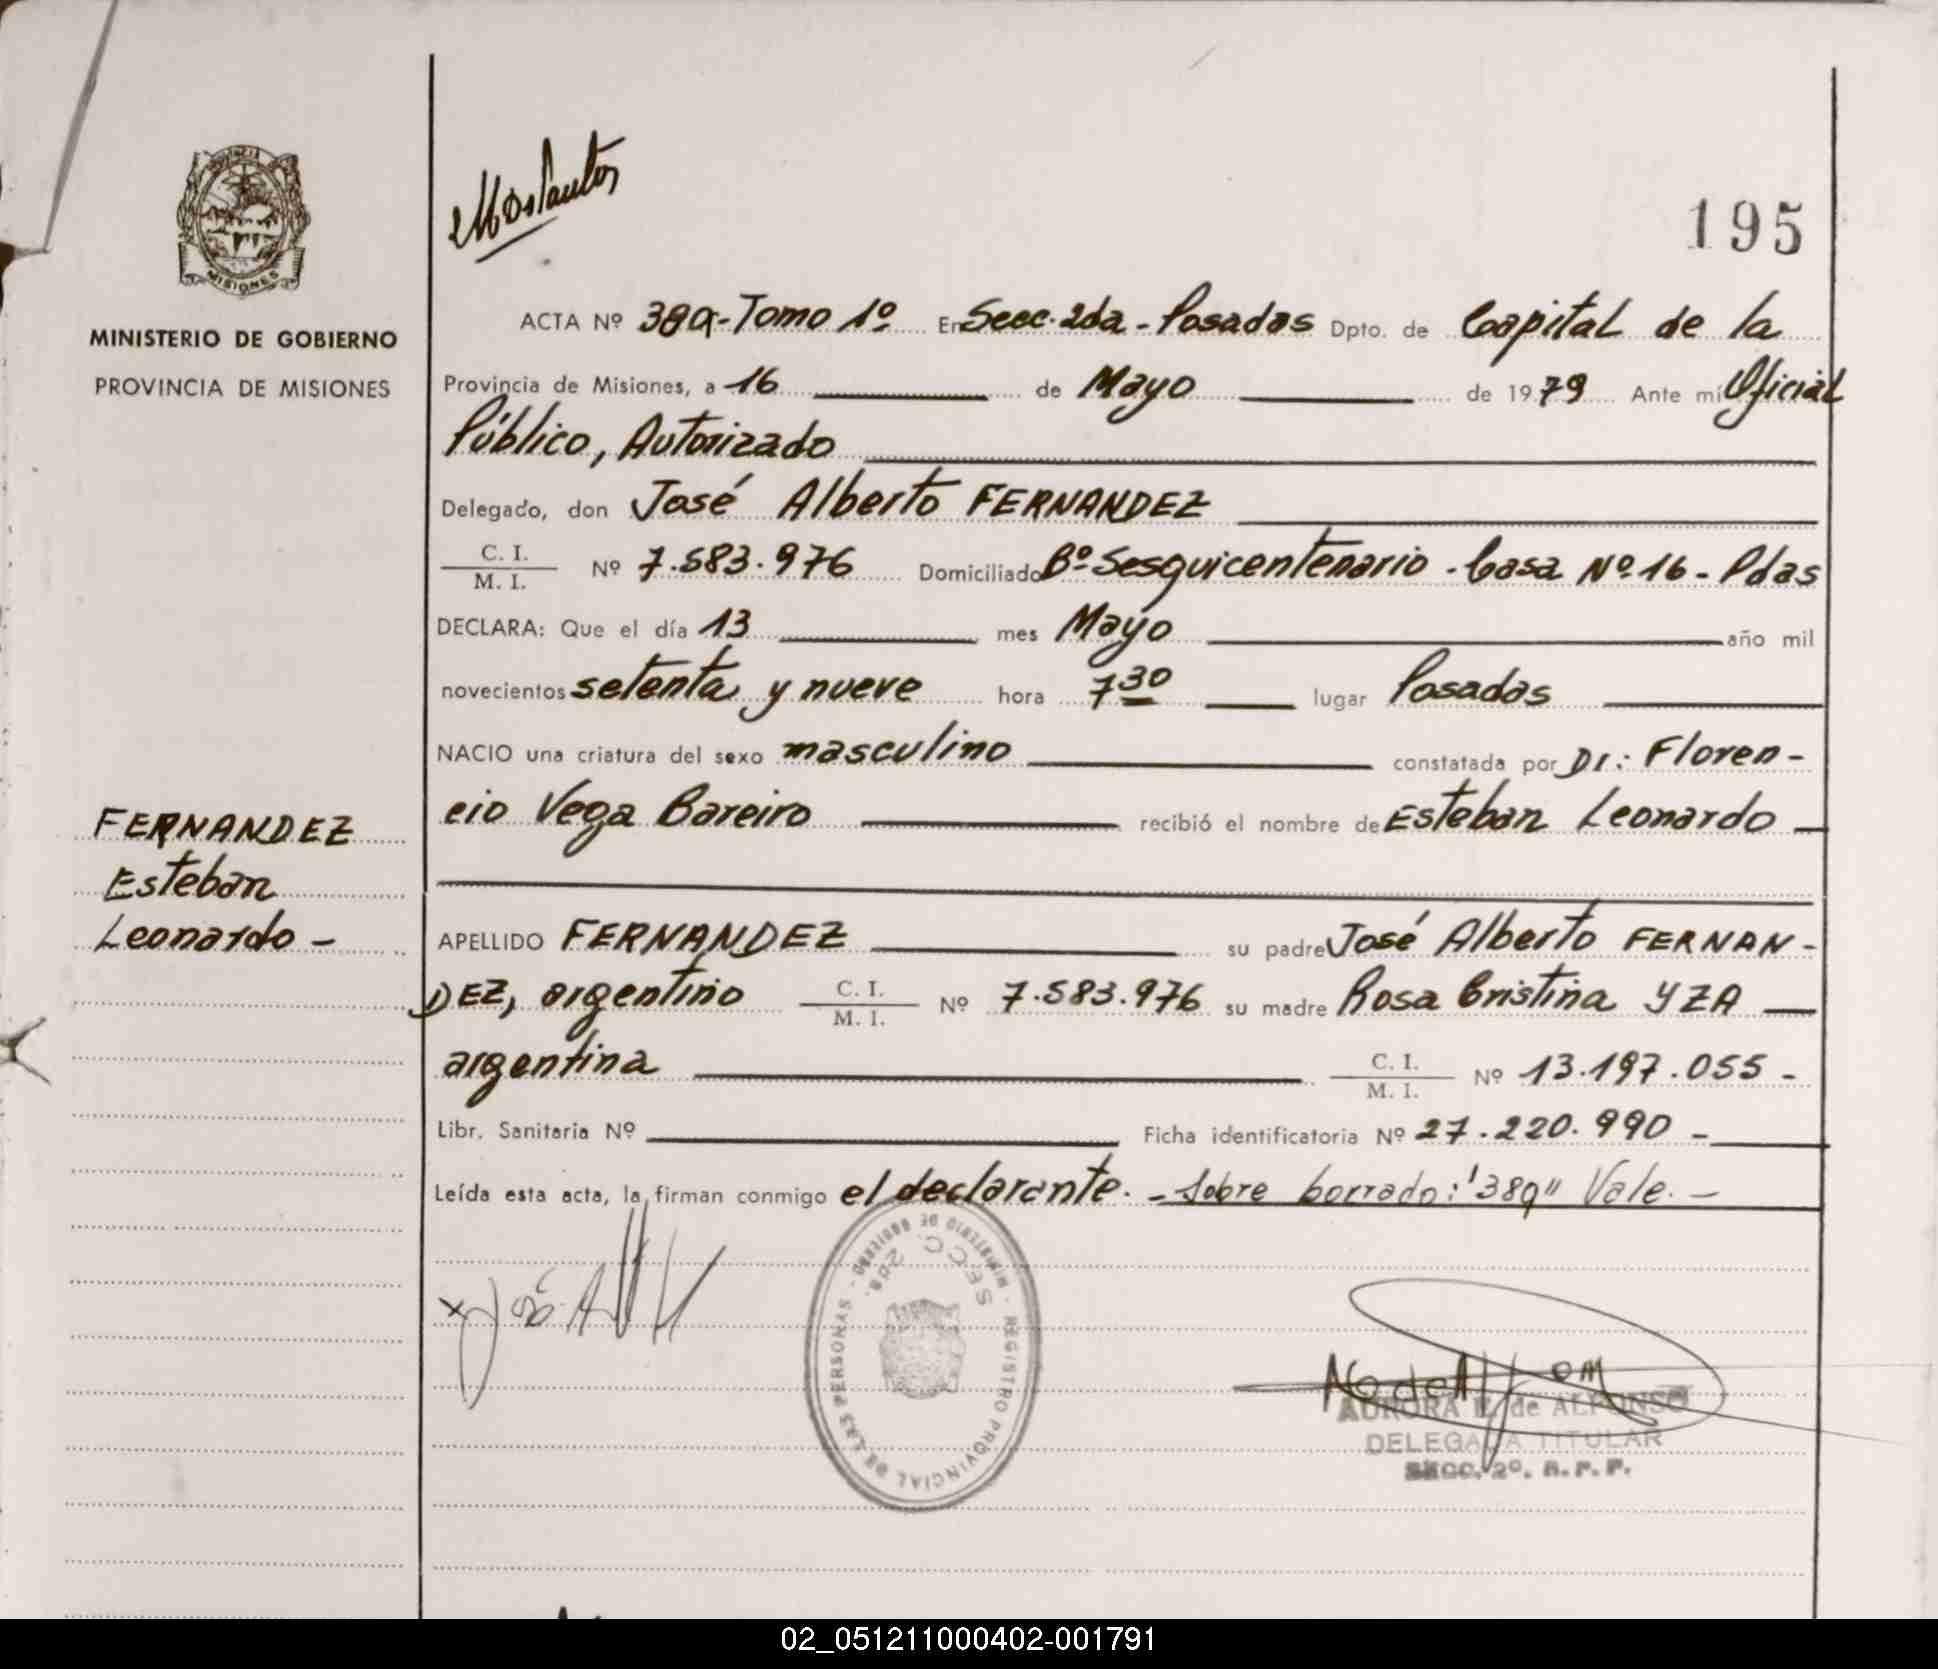 MDosSantos
195
MISIONES
MINISTERIO DE GOBIERNO
PROVINCIA DE MISIONES
ACTA Nº 389-Tomo 1º En Secc. 2da - Posadas Dpto. de Capital de la
Provincia de Misiones, a 16 de Mayo de 1979 Ante mí Oficial
Público, Autorizado
Delegado, don José Alberto FERNANDEZ
C. I.
M. I. Nº 7.583.976 Domiciliado Bº Sesquicentenario - Casa Nº 16 - Pdas
DECLARA: Que el día 13 mes Mayo año mil
novecientos setenta y nueve hora 7 30 lugar Posadas
NACIO una criatura del sexo masculino constatada por Dr: Floren-
cio Vega Bareiro recibió el nombre de Esteban Leonardo
FERNANDEZ
Esteban
Leonardo -
APELLIDO FERNANDEZ su padre José Alberto FERNAN-
DEZ, argentino C. I.
M. I. Nº 7.583.976 su madre Rosa Cristina YZA
argentina C. I.
M. I. Nº 13.197.055 -
Libr. Sanitaria Nº Ficha identificatoria Nº 27.220.990 -
Leída esta acta, la firman conmigo el declarante. - Sobre borrado: "389" Vale. -
x José A
MINISTERIO DE GOBIERNO - REGISTRO PROVINCIAL DE LAS PERSONAS -
SECC. 2da.
AURORA E. de ALFONSO
DELEGADA TITULAR
SECC. 2º. R. P. P.
02_051211000402-001791